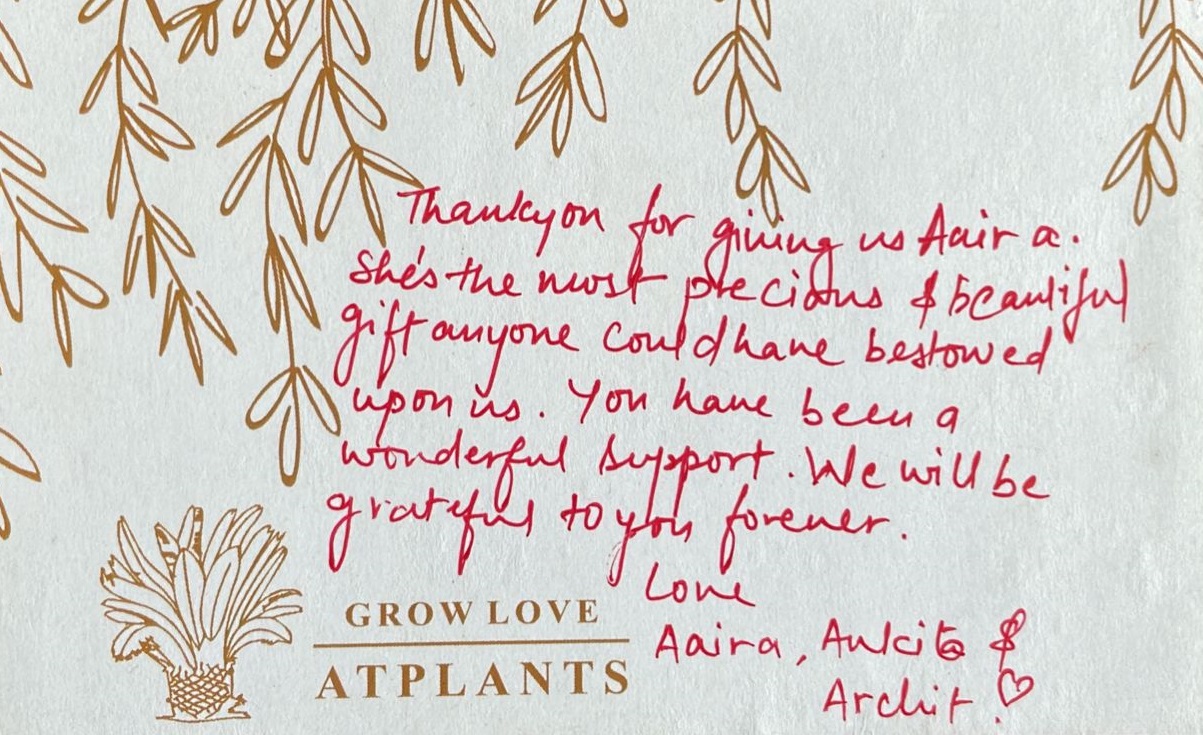 Thankyou for giving us Aaira.
She's the most precious & beautiful
gift anyone could have bestowed
upon us. You have been a
wonderful support. We will be
grateful to you forever.
Love
Aaira, Ankita &
Archit. ♡
GROW LOVE
ATPLANTS